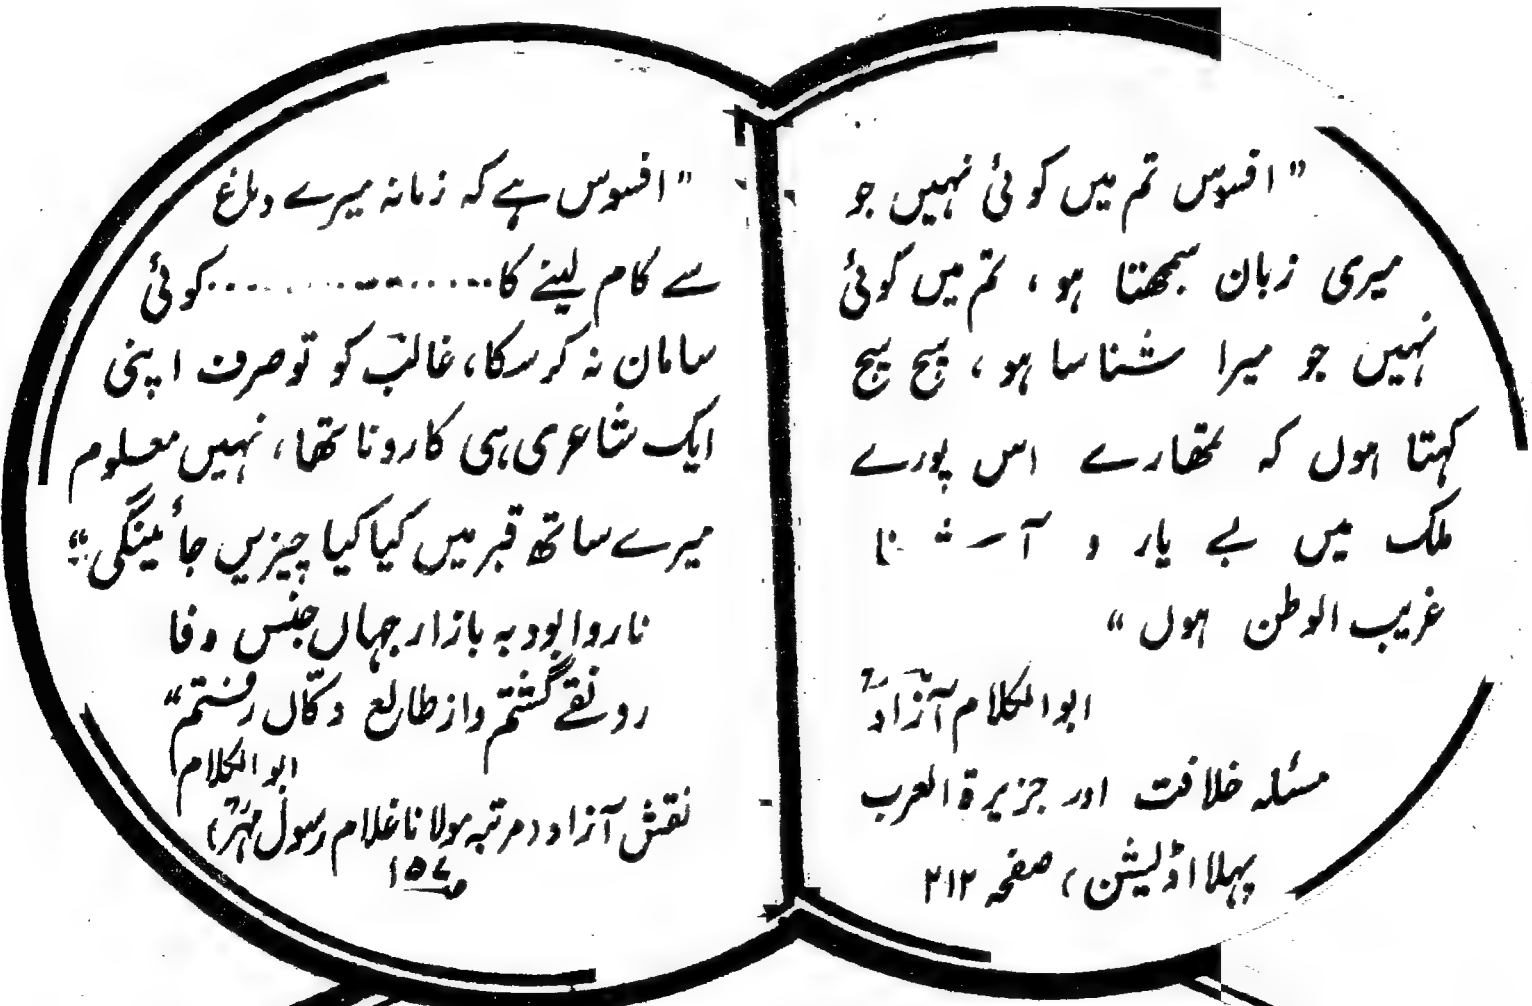 "افسوس تم میں کوئی نہیں جو
میری زبان سمجھتا ہو، تم میں کوئی
نہیں جو میرا شناسا ہو، سچ سچ
کہتا ہوں کہ تمھارے اس پورے
ملک میں بے یار و آشنا
غریب الوطن ہوں"
ابوالکلام آزاد
مسئلہ خلافت اور جزیرۃ العرب
پہلا اڈیشن، صفحہ ۲۱۲
"افسوس ہے کہ زمانہ میرے دماغ
سے کام لینے کا..................کوئی
سامان نہ کر سکا، غالب کو تو صرف اپنی
ایک شاعری ہی کا رونا تھا، نہیں معلوم
میرے ساتھ قبر میں کیا کیا چیزیں جائینگی"
ناروا بود بہ بازار جہاں جنس وفا
رونقے گشتم و از طالع دکاں رفتم"
ابوالکلام
نقش آزاد (مرتبہ مولانا غلام رسول مہر)
ص ۱۵۷